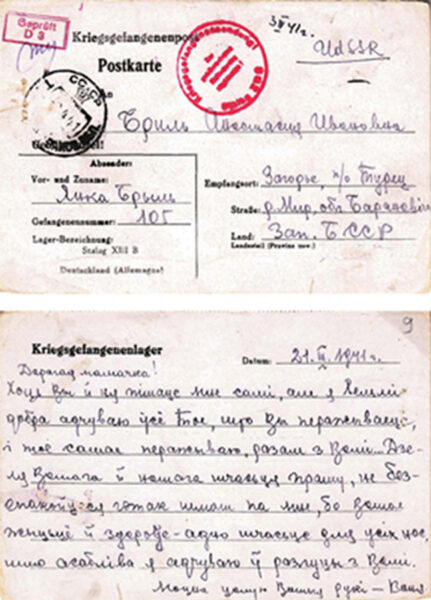 Geprüft
D 3
Kriegsgefangenenpost
Postkarte
3 III 41 г.
UdSSR
An
Бриль Анастасия Ивановна
Absender:
Vor- und Zuname:
Янка Брыль
Gefangenennummer: 105
Lager-Bezeichnung:
Stalag XIII B
Deutschland (Allemagne)
Empfangsort: Загорье, п/о Турец
Straße: д. Мир, обл. Баранович
Land: Зап. БССР
Landesteil (Provinz usw.)
9
Kriegsgefangenenlager
Datum: 21. II. 1941 г.
Дарагая мамачка!
Хоць Вы й ня пішаце мне самі, але я вельмі
добра адчуваю ўсё тое, што Вы перажываеце,
і тое самае перажываю, разам з Вамі. Дзе-
ля Вашага й нашага шчасьця прашу, не без-
спакойцеся гэтак шмат па мне, бо Ваша
жыцьцё й здароўе – адно шчасьце для ўсіх нас,
што асабліва я адчуваю ў разлуцы з Вамі.
Моцна цалую Вашыя рукі – Ваня.